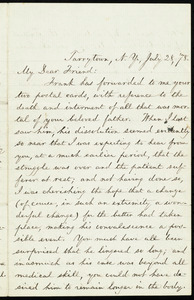 Tarrytown, N. Y., July 29/78.
My Dear Friend:
Frank has forwarded to me your
two postal cards, with reference to the
death and interment of all that was mor-
tal of your beloved father. When I last
saw him, his dissolution seemed evidently
so near that I was expecting to hear from
you, at a much earlier period, that the
struggle was over and the patient suf-
ferer at rest; and not having done so,
I was cherishing the hope that a change
(of course, in such an extremity, a won-
derful change) for the better had taken
place, making his convalescence a pos-
sible event. You must have all been
surprised that he lingered so long; and
inasmuch as his case was beyond all
medical skill, you could not have de-
sired him to remain longer in the body.